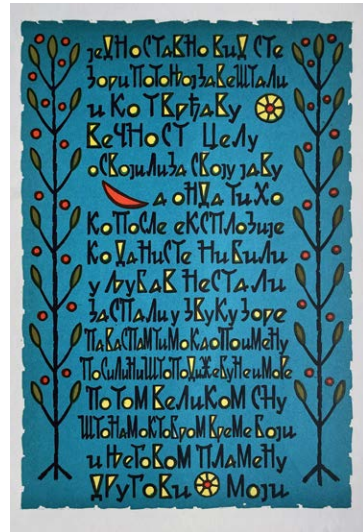 једноставно вид сте
зори потоњој завештали
и ко тврђаву
вечност целу
освојили за своју јаву
а онда тихо
ко после експлозије
ко да нисте ни били
у љубав нестали
заспали у звуку зоре
па вас памтимо као по имену
по силини што подиже буне и море
по том великом сну
што нам октобром време боји
и његовом пламену
другови моји